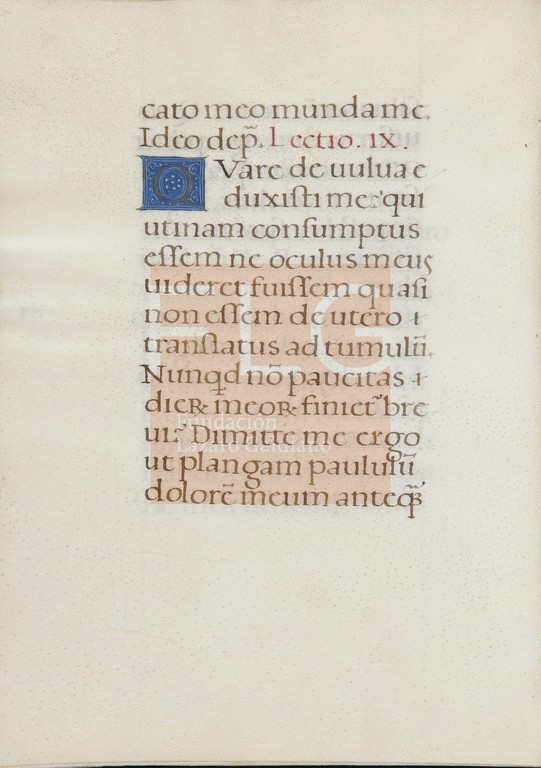 cato meo munda me.
Ideo dep̃. Lectio. IX.
QVare de uulua e
duxisti me: qui
utinam consumptus
essem ne oculus meus
uideret fuissem quasi
non essem de utero
translatus ad tumulũ.
Nunqd nõ paucitas
dieꝝ meoꝝ finiet᷑ bre
ui? Dimitte me ergo
ut plangam paululũ
dolorẽ meum anteq̃
FLG
Fundación
Lázaro Galdiano